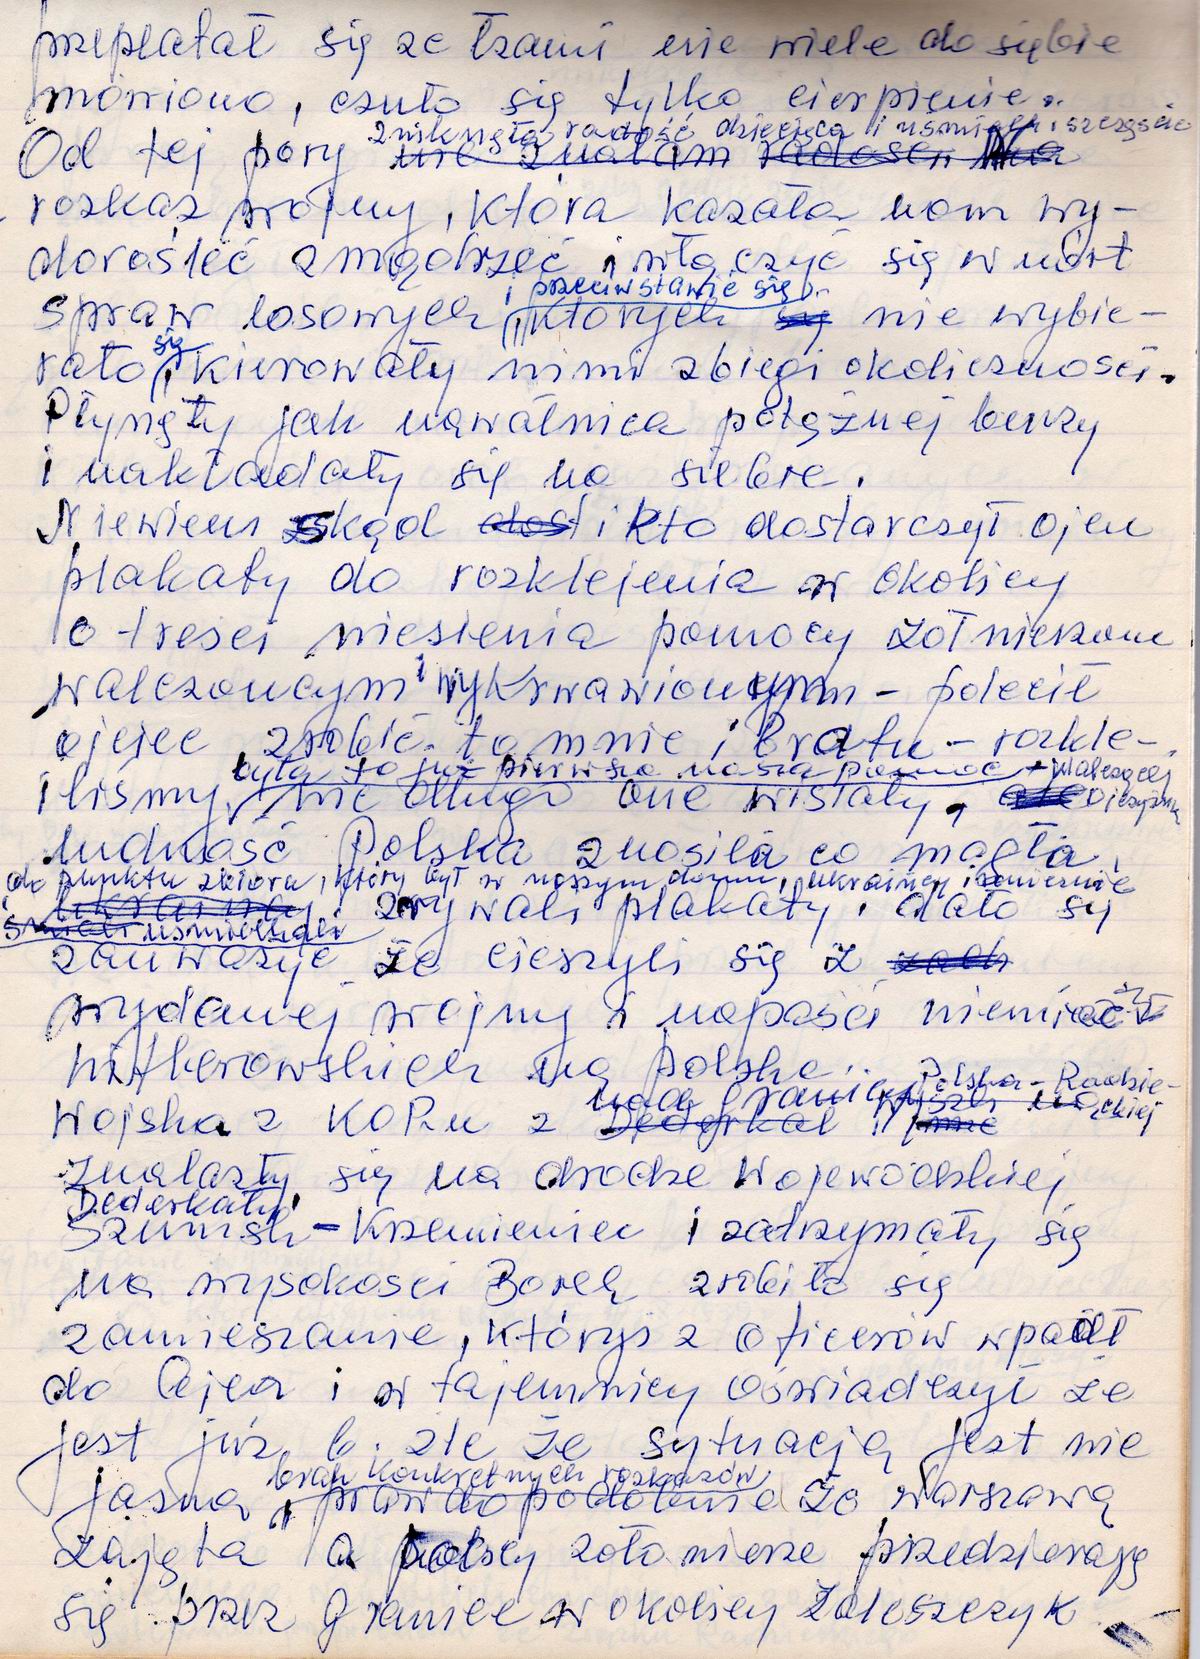 przeplatał się ze łzami nie wiele do siebie
mówiono, czuło się tylko cierpienie.
zniknęła radość dziecięca i uśmiech i szczęście
Od tej pory nie znałam radości Na
rozkaz wojny, która kazała nam wy-
dorośleć zmądrzeć i włączyć się w nurt
i przeciwstawić się
spraw losowych których nie wybie-
się
rało, kierowały nimi zbiegi okoliczności.
Płynęły jak nawałnica potężnej burzy
i nakładały się na siebie.
Niewiem skąd i kto dostarczył ojcu
plakaty do rozklejenia w okolicy
o treści niesienia pomocy żołnierzom
walczoncym i wykrwawionym - polecił
ojciec zrobić to mnie i bratu - rozkle-
była to już pierwsza nasza pomoc walczącej
iliśmy, nie długo one wisiały, ojczyźnie
ludność Polska znosiła co mogła,
do punktu zbioru, który był w naszym domu, ukraińcy
zrywali plakaty, dało się
zauważyć że cieszyli się z
wydanej wojny i napaści
hitlerowskich na Polskę.
nad granicy Polsko - Radzie-
ckiej
Wojska z KOPu z Dederkał
znalazły się na drodze Wojewódzkiej
Dederkały,
Szumsk - Krzemieniec i zatrzymały się
na wysokości Borek zrobiło się
zamieszanie, któryś z oficerów wpadł
do Ojca i w tajemnicy oświadczył że
jest już b. źle że sytuacją jest nie
brak konkretnych rozkazów
jasną, prawdopodobnie że Warszawą
zajęta a polscy żołonierze przedzierają
się przez granice w okolicy Zaleszczyk